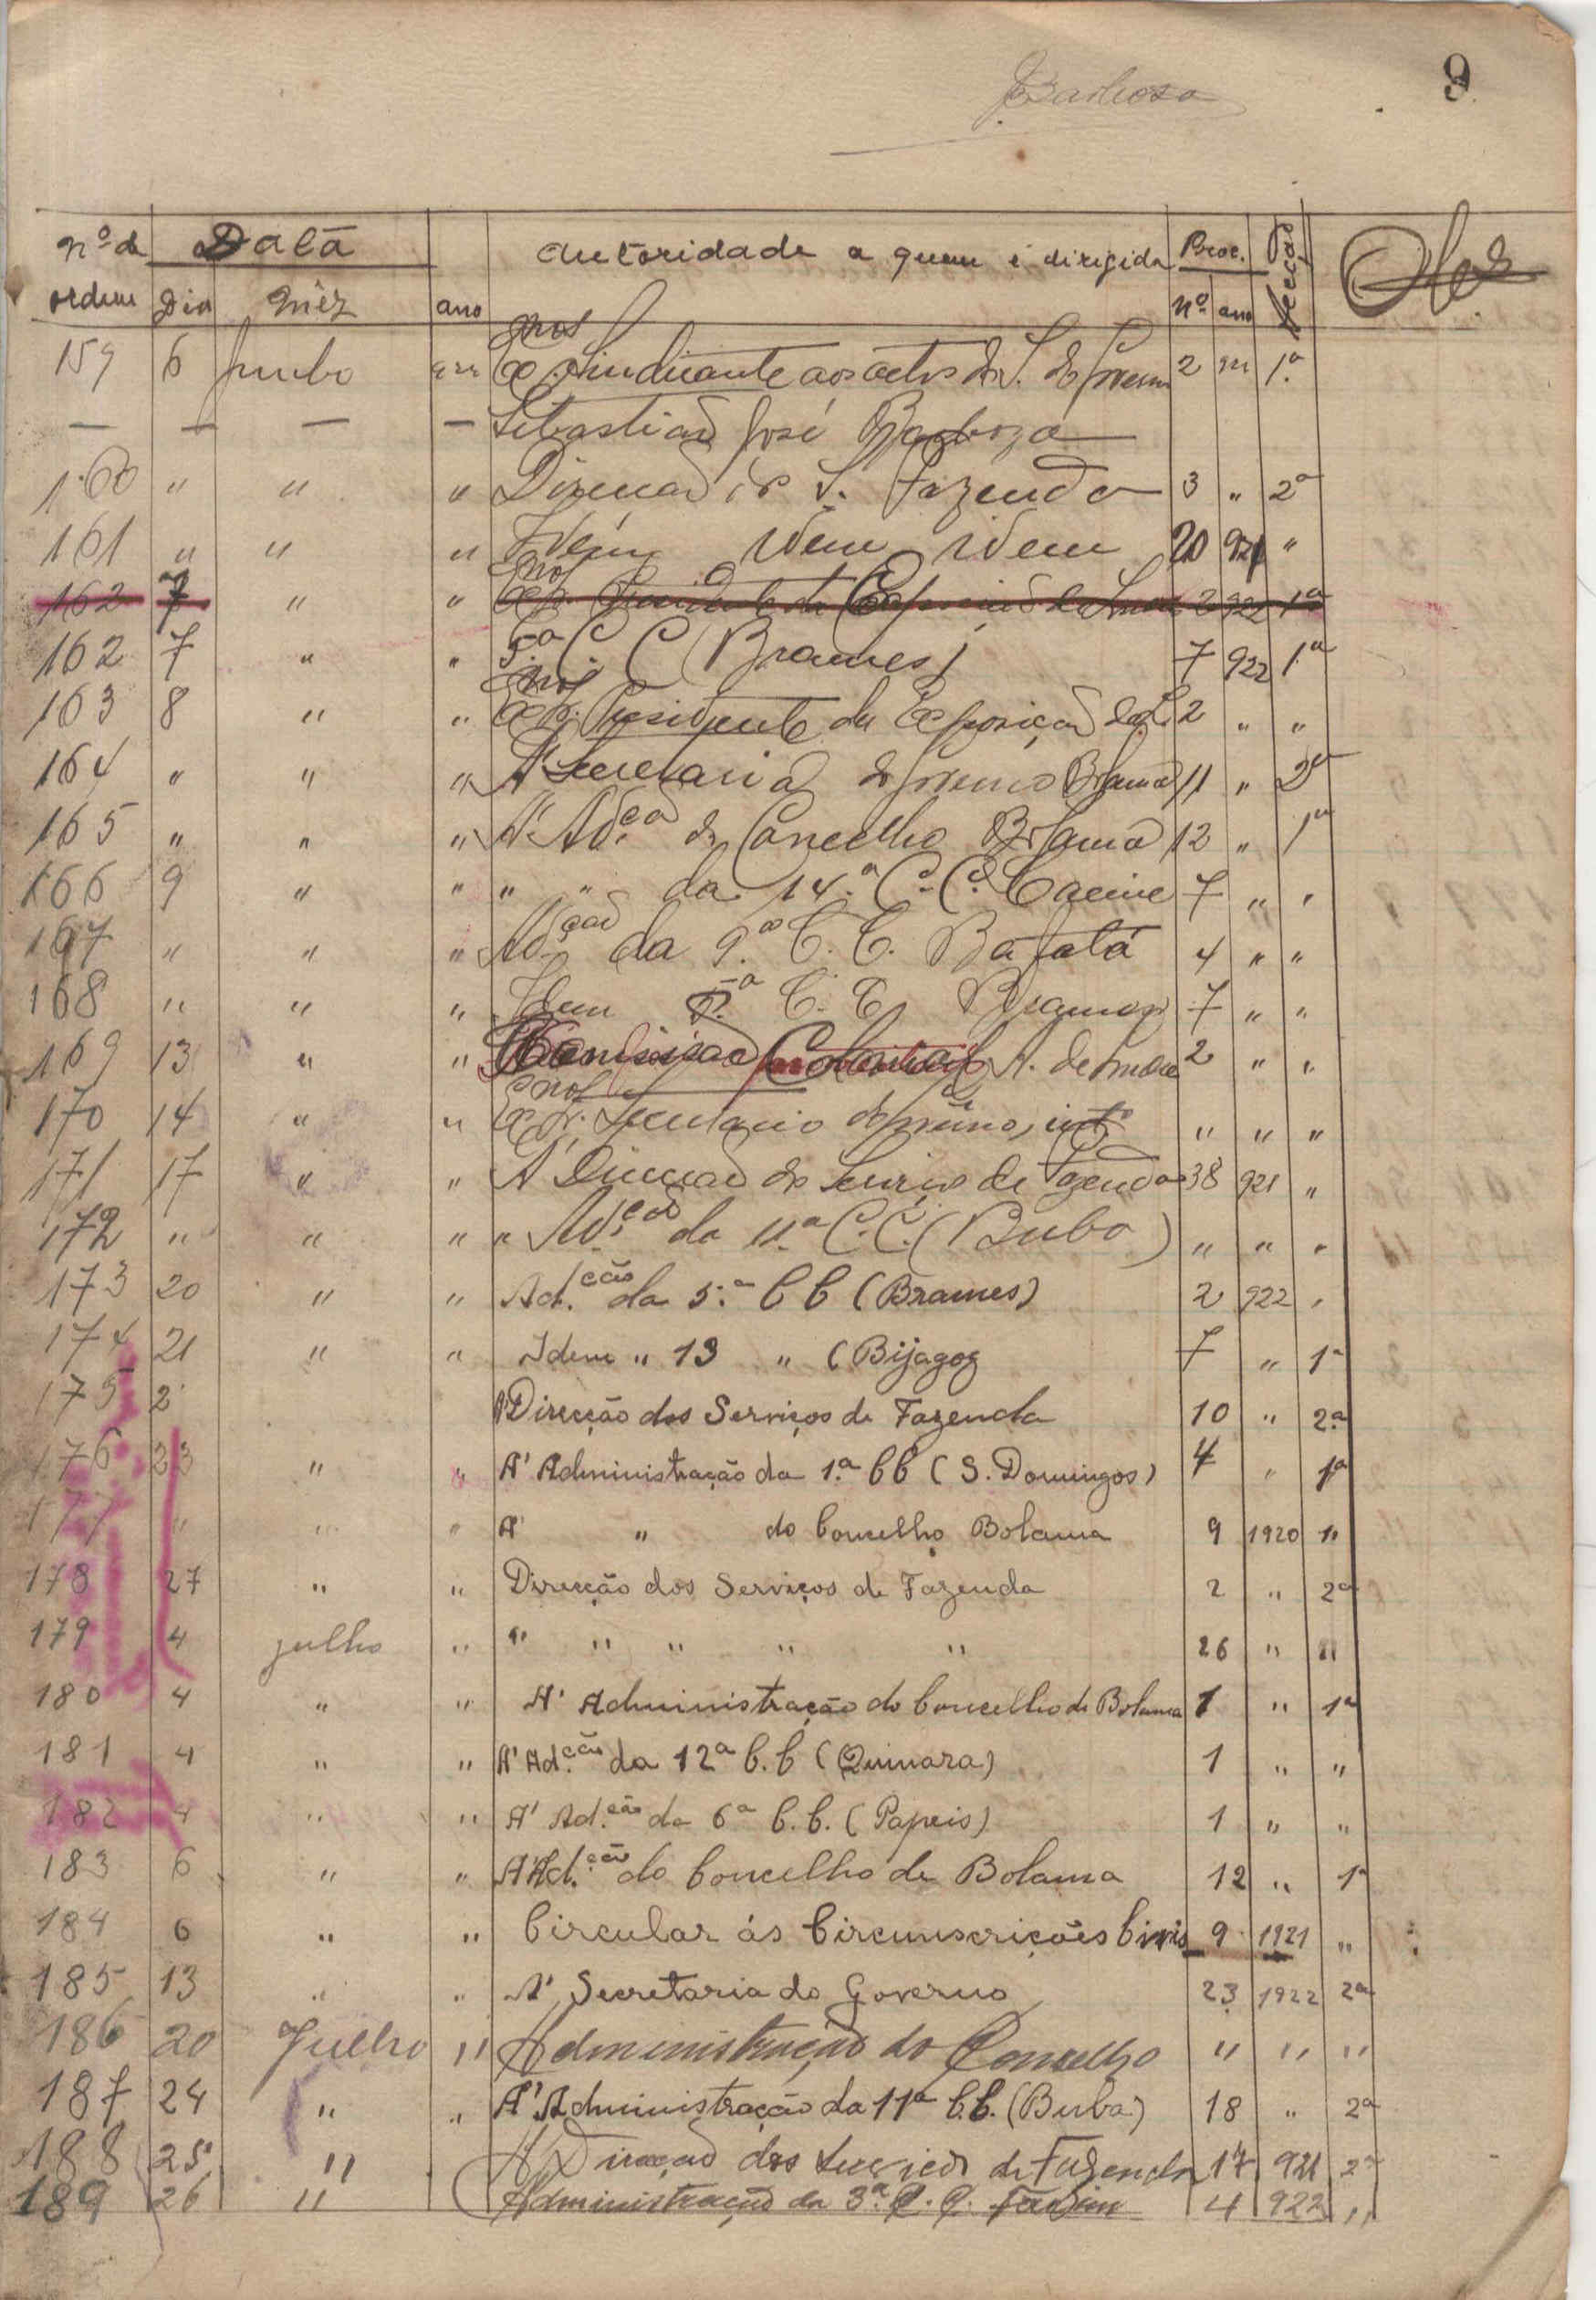 Barbosa
9
Nº de Data ano Autoridade a quem é dirigida Proc. Secção Obs
ordem Dia Mês Nº ano
159 6 Junho 922 Exmo Sr. Sindicante aos actos do S. do Governo 2 922 1.ª
— — — — Sebastião José Barboza
160 " " " Direcção S. Fazenda 3 " 2ª
161 " " " Idem idem idem 20 921 "
162 7 " " Exmo Sr. Presidente da Exposição de 2 922 1ª
162 7 " " 5.ª C. C (Brames) 7 922 1.ª
163 8 " " Exmo Sr. Presidente da Exposição 2 " "
164 " " " A' Secretaria do Governo Bolama 11 " 2ª
165 " " " A' Ad.ção do Concelho Bolama 12 " 1ª
166 9 " " " " da 14.ª C. C. Cacine 7 " "
167 " " " Ad.ção da 9.ª C. C. Bafatá 4 " "
168 " " " Idem 5.ª C. C. Brames 7 " "
169 13 " " Comissão Colonial A. de 2 " "
170 14 " " Exmo Sr. Secretario do Governo, intº " " "
171 17 " " A' Direcção do Serviço de Fazenda 38 921 "
172 " " " " Ad.ção da 11.ª C. C. (Buba) " " "
173 20 " " Ad.cção da 5.ª C C (Brames) 2 922 "
174 21 " " Idem " 13 " (Bijagoz 7 " 1ª
175 2 A' Direcção dos Serviços de Fazenda 10 " 2.ª
176 23 " " A' Administração da 1.ª C C (S. Domingos) 4 " 1ª
177 " " " A' " do Concelho Bolama 9 1920 1"
178 27 " " Direcção dos Serviços de Fazenda 2 " 2ª
179 4 julho " " " " " " 26 " "
180 4 " " A' Administração do Concelho de Bolama 1 " 1ª
181 4 " " A' Ad.cção da 12ª C. C (Quinara) 1 " "
182 4 " " A' Ad.ção da 6ª C. C. (Papeis) 1 " "
183 6 " " A' Ad.ção do Concelho de Bolama 12 " 1ª
184 6 " " Circular ás Circunscrições Civis 9 1921 "
185 13 " " A' Secretaria do Governo 23 1922 2ª
186 20 Julho " Administração do Concelho " " "
187 24 " " A' Administração da 11ª C. C. (Buba) 18 " 2ª
188 25 " A' Direcção dos Serviços de Fazenda 17 921 2ª
189 26 " Administração da 3.ª C. C. Farim 4 922 "